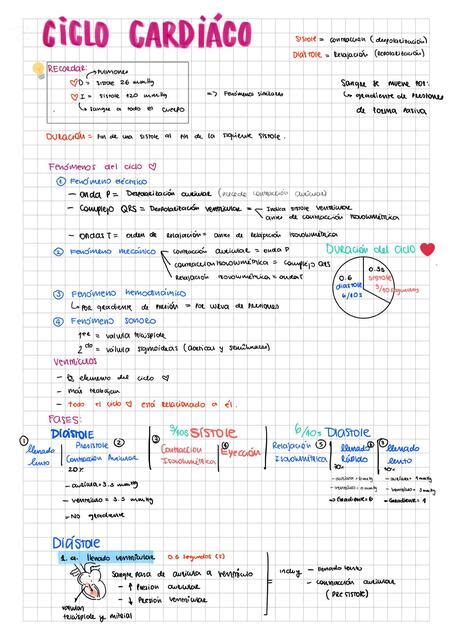 CICLO CARDIÁCO
Sístole = contracción (despolarización)
Diástole = Relajación (repolarización)
RECORDAR:
pulmones
D = sístole 26 mmHg
I = sístole 120 mmHg
sangre a todo el cuerpo
=> Fenómenos similares
Sangre se mueve por:
gradiente de presiones
de forma pasiva
Duración = Fin de una sístole al fin de la siguiente sístole.
Fenómenos del ciclo
1 Fenómeno eléctrico
- onda P = Despolarización auricular (precede contracción auricular)
- Complejo QRS = Despolarización ventricular = Indica sístole ventricular
antes de contracción isovolumétrica
- ondas T = orden de relajación = antes de relajación isovolumétrica
2 Fenómeno mecánico
contracción auricular = onda P
contracción isovolumétrica = complejo QRS
Relajación isovolumétrica = onda T
Duración del ciclo
0.6
diástole
6/10s
0.3s
sístole
3/10 segundos
3 Fenómeno hemodinámico
Por gradiente de presión = Por curva de presiones
4 Fenómeno sonoro
1er = válvula tricúspide
2do = válvula sigmoideas (aórticas y semilunares)
Ventrículos
- elemento del ciclo
- Más trabajan
- Todo el ciclo está relacionado a él.
FASES:
DIÁSTOLE
3/10s SÍSTOLE
6/10s DIASTOLE
1 llenado
lento
Presístole 2
Contracción Auricular
20%
- aurícula = 3.5 mmHg
- ventrículo = 3.5 mmHg
- No gradiente
3 Contracción
Isovolumétrica
4 Eyección
Relajación
Isovolumétrica
5 llenado
rápido
llenado
lento
Gradiente = 6
Gradiente = 1
Diástole
1. a. llenado ventricular 0.6 segundos (s)
Sangre pasa de aurícula a ventrículo
- ↑ Presión auricular
- ↓ Presión ventricular
válvulas
tricúspide y mitral
incluye
- llenado lento
- contracción auricular
(presístole)